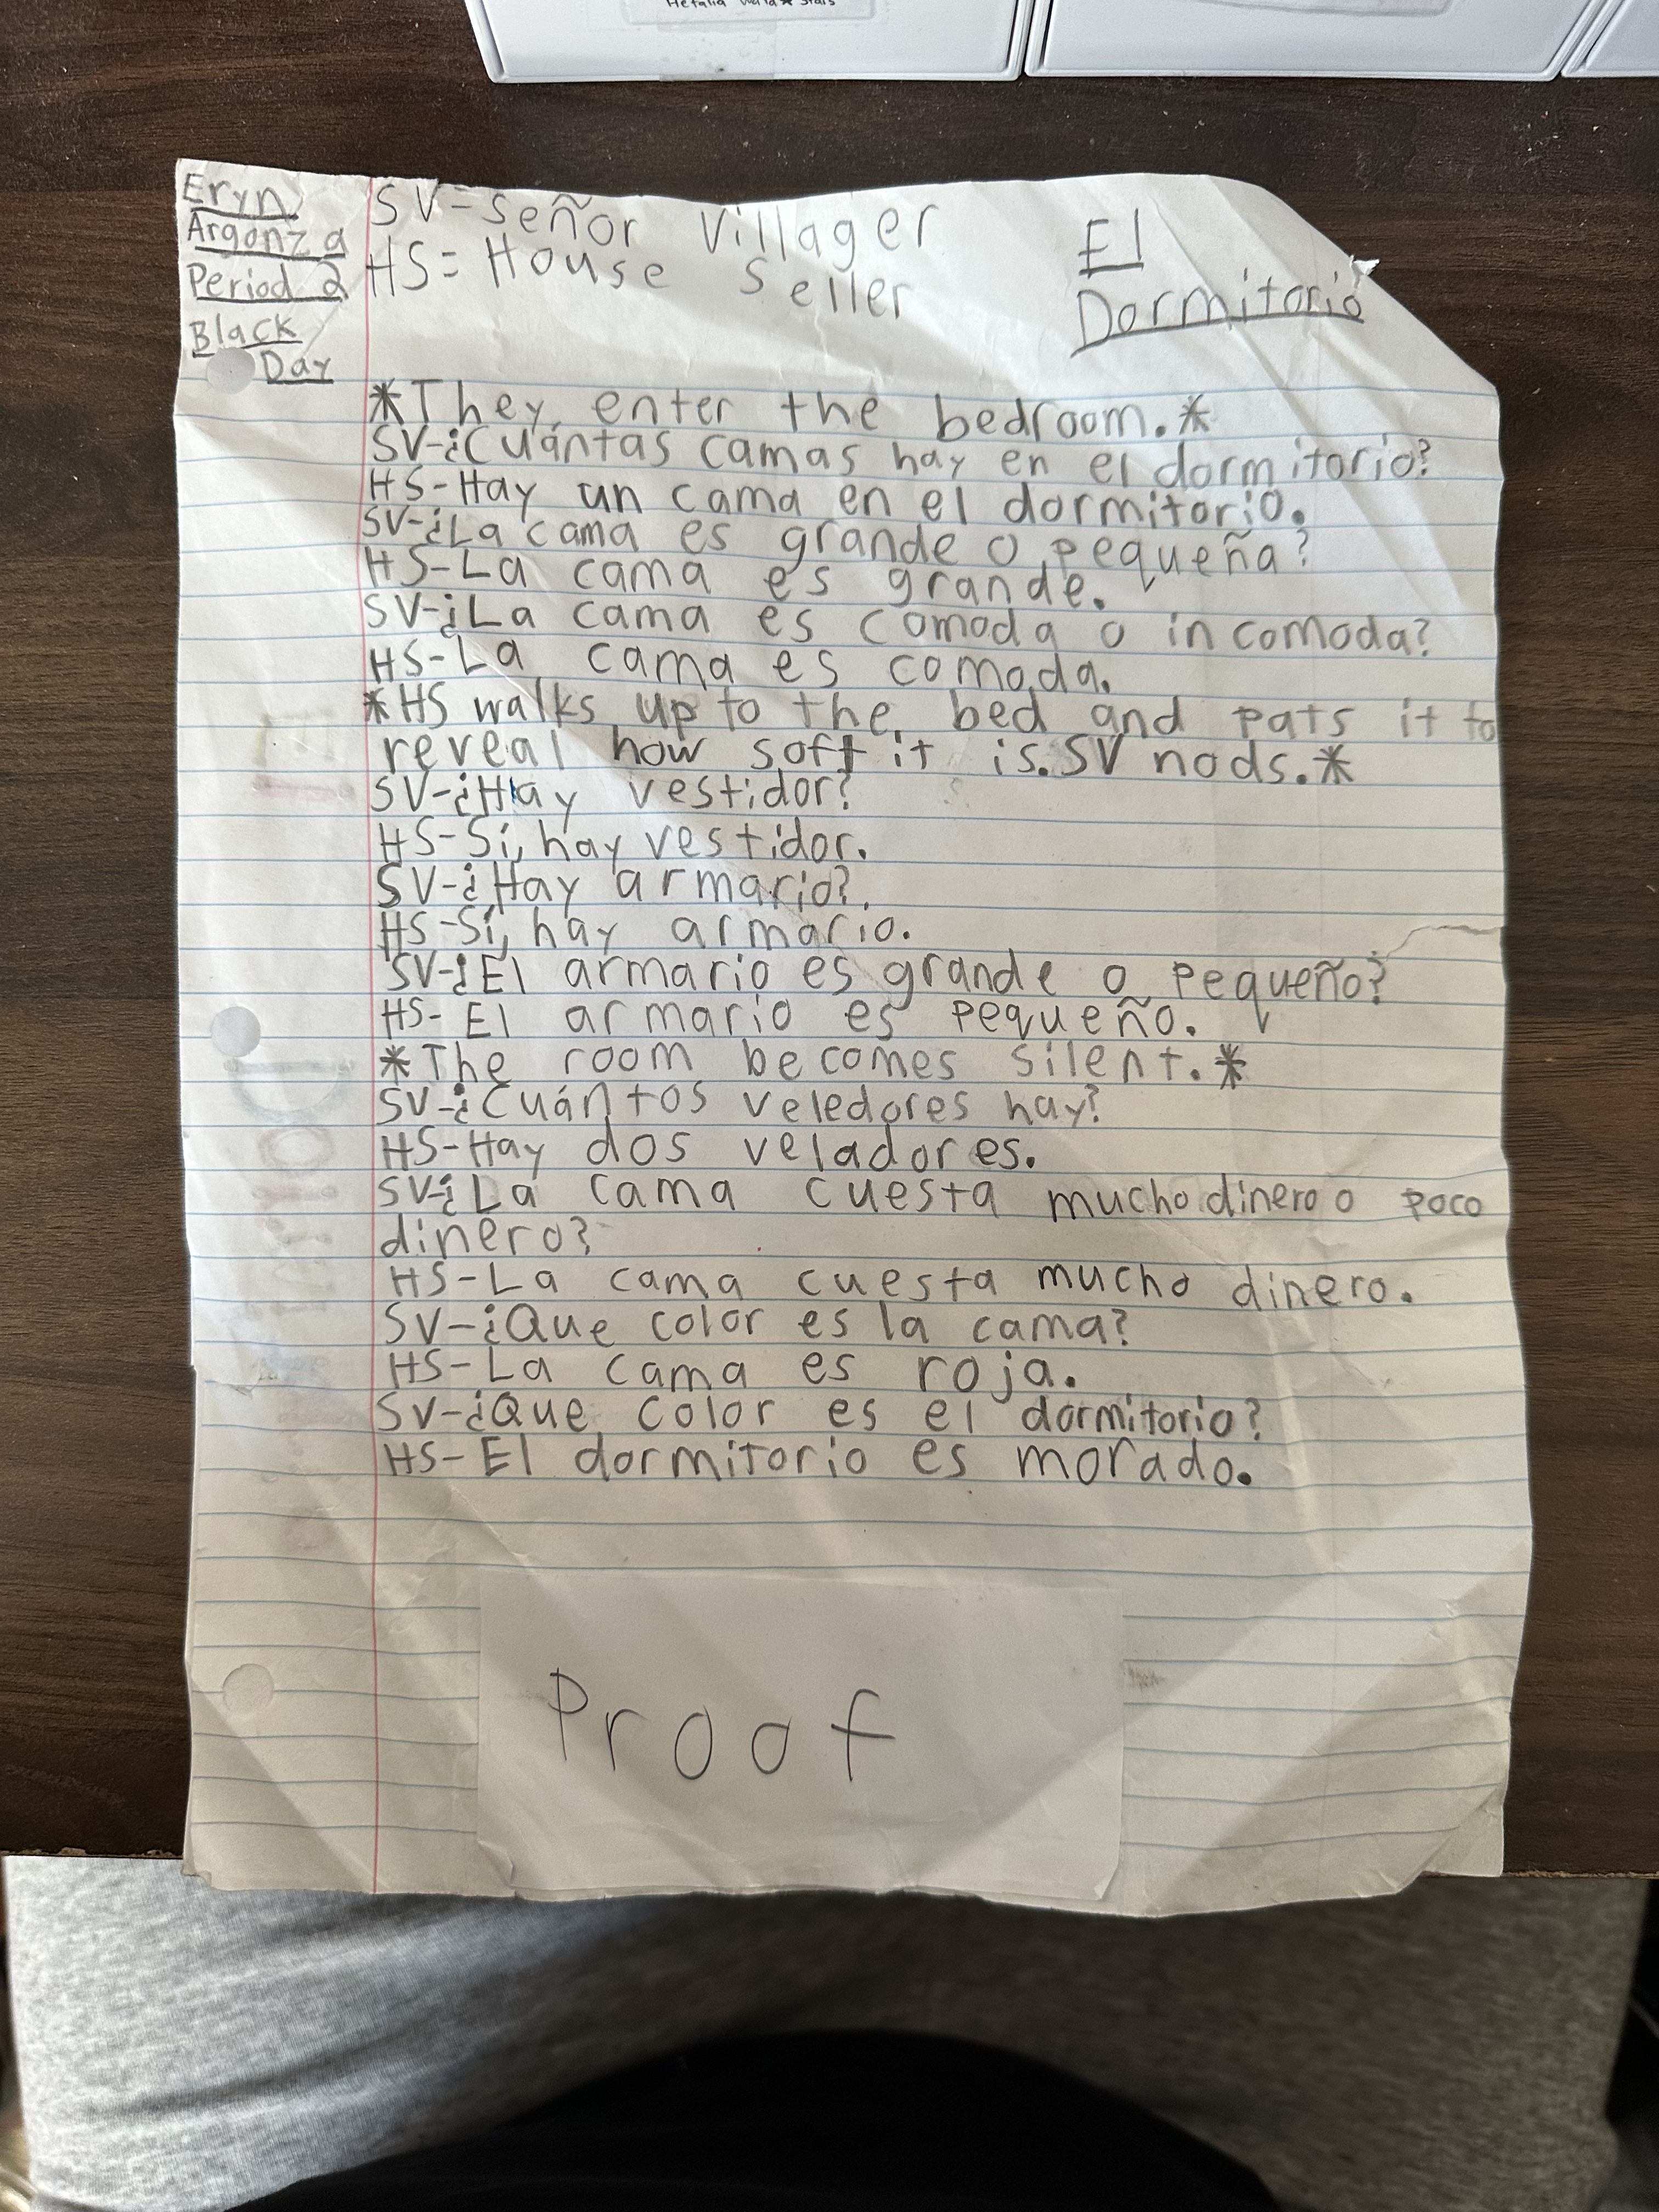 Hetalia World★Stars
Eryn
Argonza
Period 2
Black
Day
SV-Señor Villager
HS= House Seller
El
Dormitorio
*They enter the bedroom.*
SV-¿Cuántas camas hay en el dormitorio?
HS-Hay un cama en el dormitorio.
SV-¿La cama es grande o pequeña?
HS-La cama es grande.
SV-¿La cama es comoda o incomoda?
HS-La cama es comoda.
*HS walks up to the bed and pats it to
reveal how soft it is. SV nods.*
SV-¿Hay vestidor?
HS-Sí, hay vestidor.
SV-¿Hay armario?
HS-Sí, hay armario.
SV-¿El armario es grande o pequeño?
HS-El armario es pequeño.
*The room becomes silent.*
SV-¿Cuántos veledores hay?
HS-Hay dos veladores.
SV-¿La cama cuesta mucho dinero o poco
dinero?
HS-La cama cuesta mucho dinero.
SV-¿Que color es la cama?
HS-La cama es roja.
SV-¿Que color es el dormitorio?
HS-El dormitorio es morado.
Proof